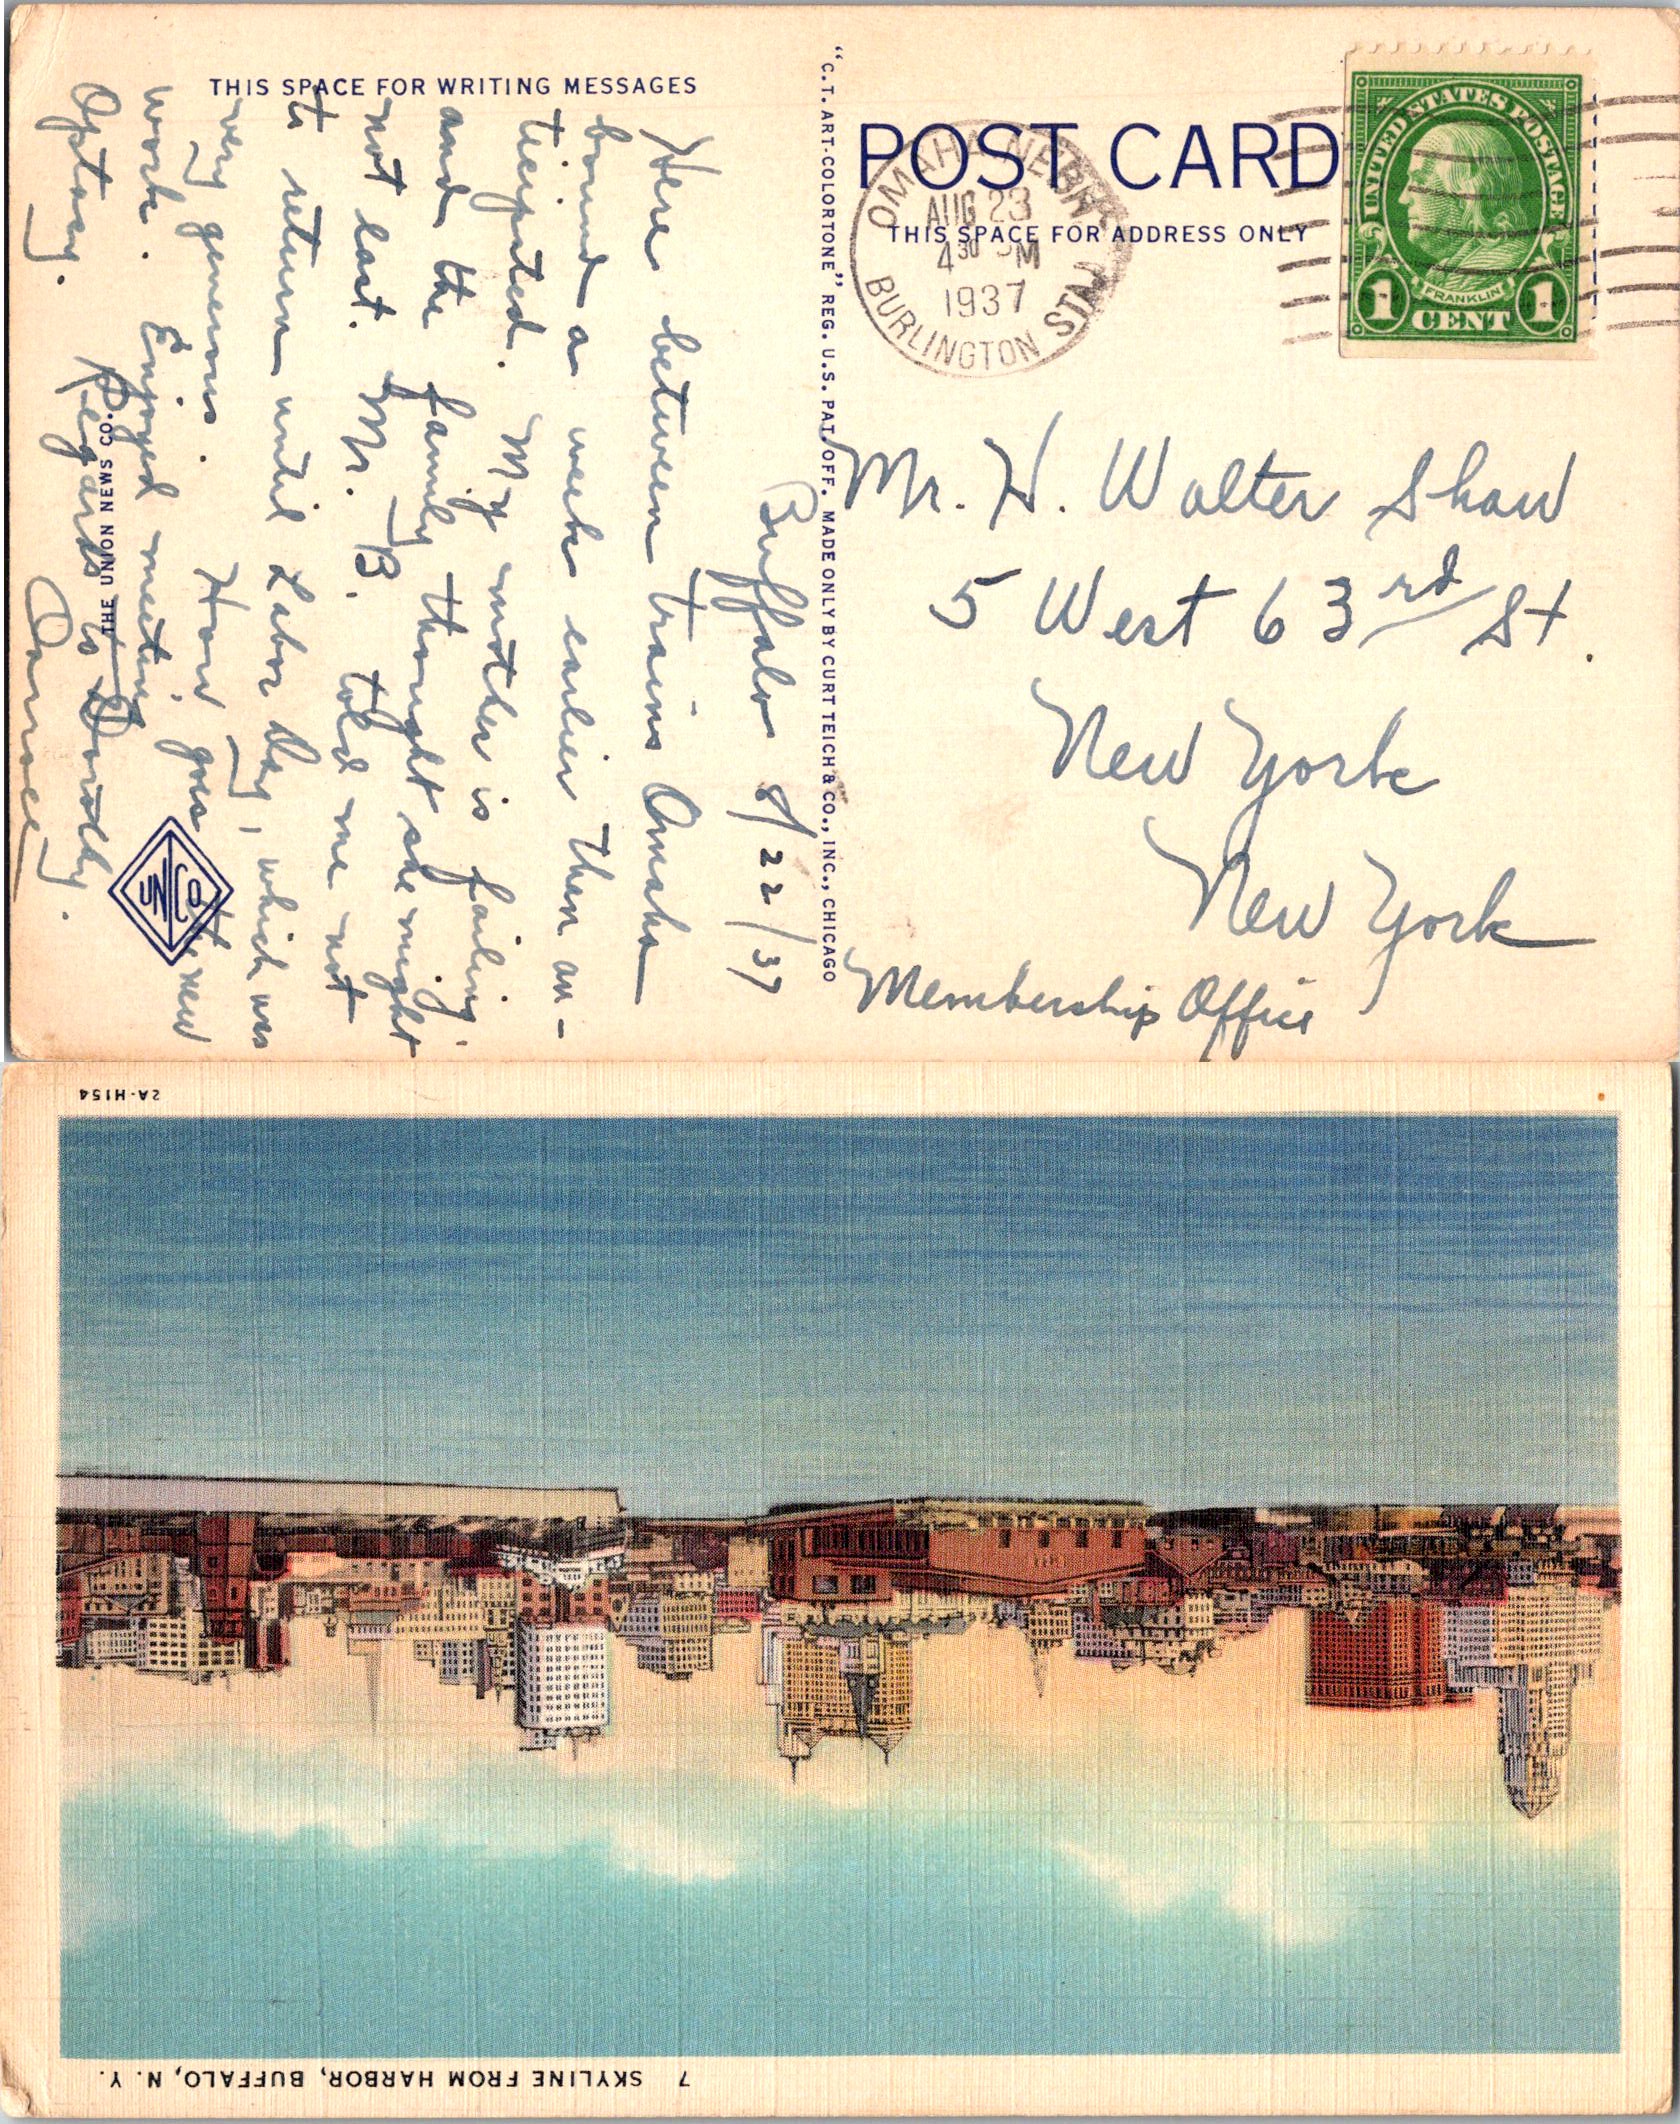 THIS SPACE FOR WRITING MESSAGES
Buffalo 8/22/37
Here between trains Omaha
bound a week earlier than an-
ticipated. My mother is failing
and the family thought she might
not last. Mr. B. told me not
to return until Labor Day, which was
very generous. How goes the new
work. Enjoyed meeting
Optary. Regards to Dorothy.
THE UNION NEWS CO.
UN CO
"C.T. ART-COLORTONE" REG. U.S. PAT. OFF. MADE ONLY BY CURT TEICH & CO., INC., CHICAGO
POST CARD
THIS SPACE FOR ADDRESS ONLY
OMAHA, NEBR.
AUG 23
4 30 PM
1937
BURLINGTON STA.
UNITED STATES POSTAGE
FRANKLIN
1 CENT 1
Mr. H. Walter Shaw
5 West 63rd St.
New York
New York
Membership Office
2A-H154
7 SKYLINE FROM HARBOR, BUFFALO, N. Y.